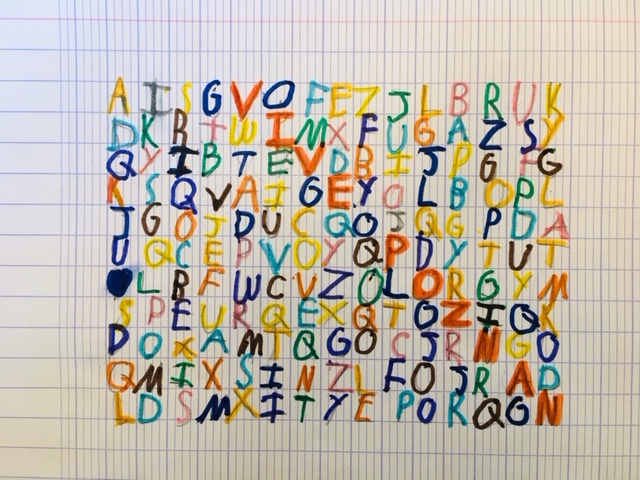 A I S G V O F E Z J L B R U K
D K R T W I M X F U G A Z S Y
Q Y I B T E V D B I J P G F G
K S Q V A I G E Y O L B O P L
J G O J D U C Q O J Q G P D A
U Q C E P V O Y Q P D Y T U T
L R F W C V Z O L O R G Y M
S P E U R Q E X Q T O Z I Q K
D O X A M T Q G O C J R N G O
Q M I X S I N Z L F O J R A D
L D S M X I T Y E P O K Q G N